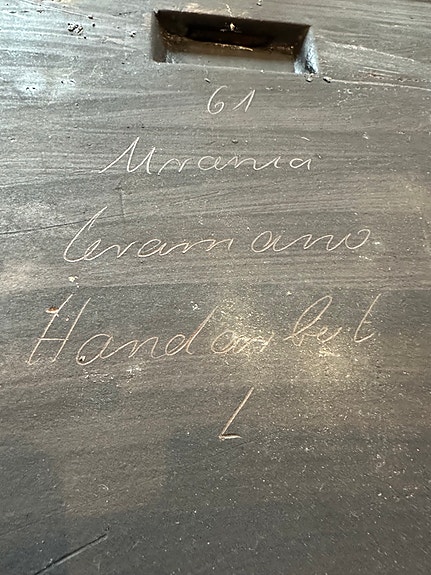 61
Urania
Ceramano
Handarbeit
L